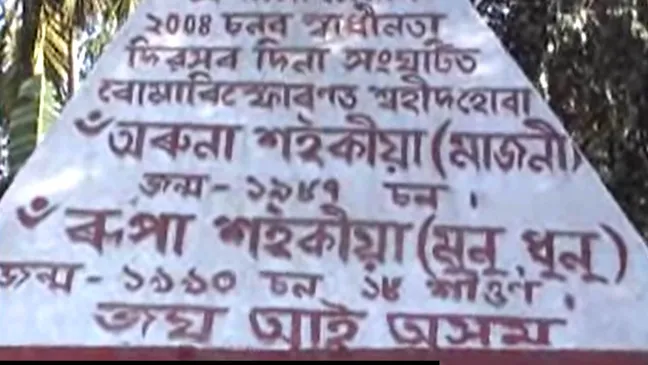 2004 চনৰ স্বাধীনতা
দিৱসৰ দিনা সংঘটিত
বোমাবিস্ফোৰণত শ্বহীদহোৱা
ঁঅৰুনা শইকীয়া (মাজনী)
জন্ম - ১৯৪৭ চন।
ঁৰূপা শইকীয়া (মুন্, ধুন্)
জন্ম - ১৯৯০ চন ১৪ শাওণ,
জয় আই অসম